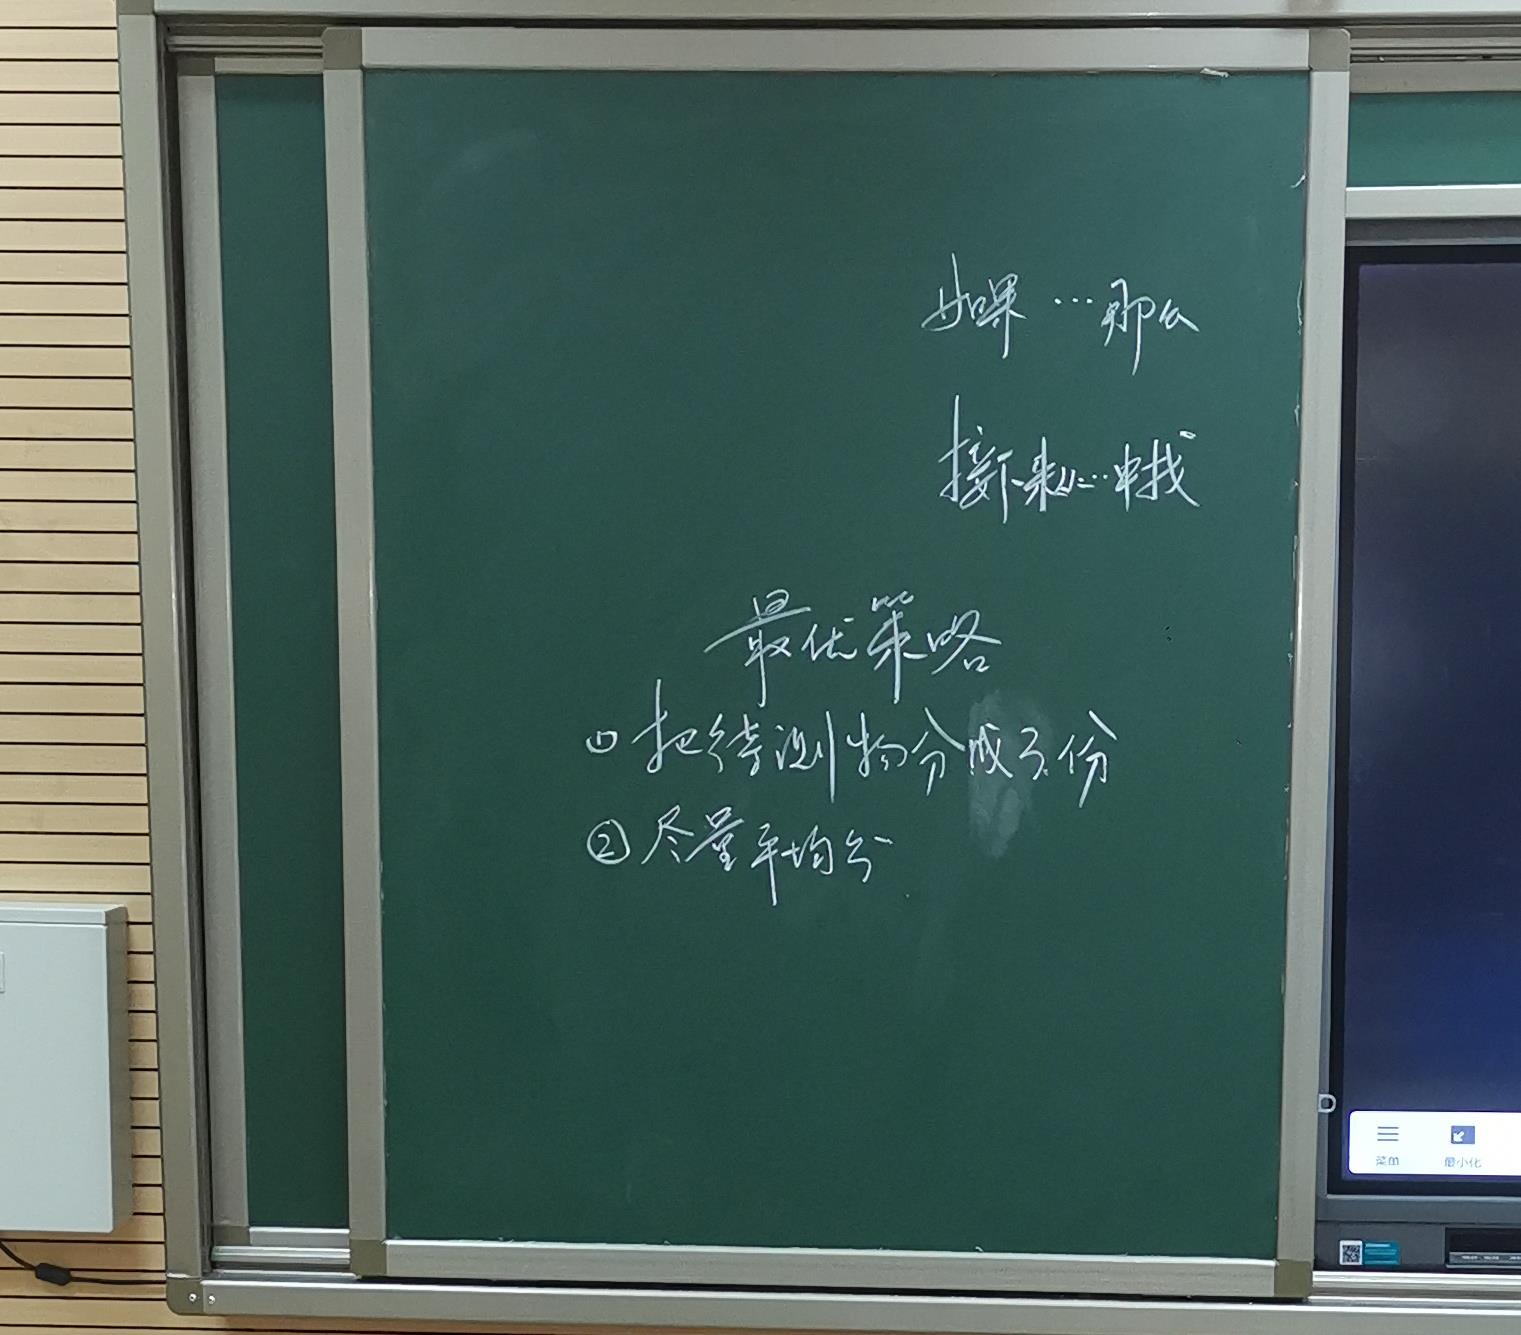 如果…那么
接下来从…中找
最优策略
① 把待测物分成3份
② 尽量平均分
菜单
最小化